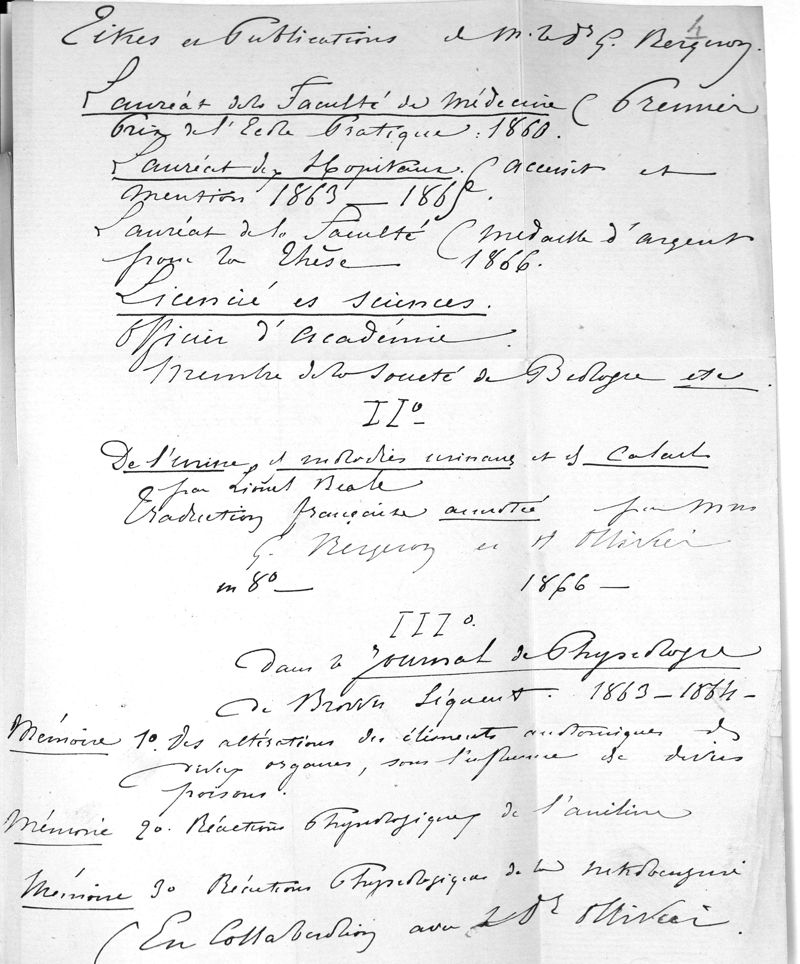 4
Titres et Publications de M. le Dr G. Bergeron.
Lauréat de la Faculté de Médecine ( Premier
Prix de l'Ecole Pratique : 1860.
Lauréat des Hopitaux. ( accessit et
mention 1863 — 1865.
Lauréat de la Faculté ( médaille d'argent
pour la Thèse — 1866.
Licencié es sciences.
Officier d'académie.
Membre de la Société de Biologie etc.
II°
De l'urine, et maladies urinaires et des Calculs
par Lionel Beale
Traduction française annotée par Mrs
G. Bergeron et A Ollivier
in 8° — 1866 —
III°.
Dans le Journal de Physiologie
de Brown Séquart. 1863 — 1864 —
Mémoire 1°. Des altérations des éléments anatomiques des
organes, sous l'influence de divers
poisons.
Mémoire 2°. Réactions Physiologiques de l'aniline
Mémoire 3° Réactions Physiologiques de la nitrobenzine
( En Collaboration avec le Dr Ollivier.